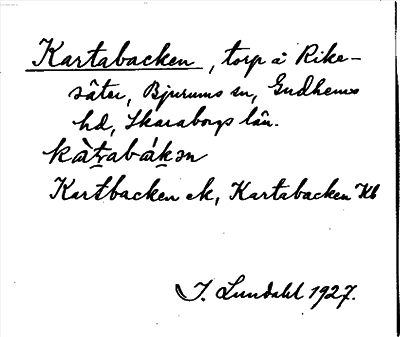 Kartabacken, torp å Rike-
säter, Bjurums sn, Gudhems
hd, Skaraborgs län.
kàt̠abák̠ən
Kartbacken ek, Kartabacken Kb
I. Lundahl 1927.